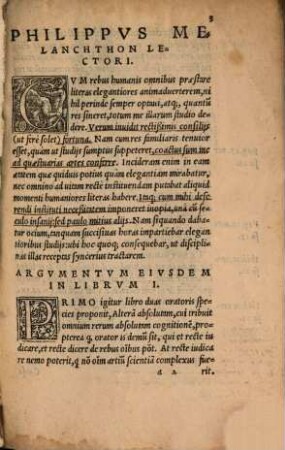 8
PHILIPPVS ME-
LANCHTHON LE-
CTORI.
CVM rebus humanis omnibus præstare
literas elegantiores animaduerterem, ni
hil perinde semper optaui, atq;, quantũ
res sineret, totum me illarum studio de-
dere. Verum inuidit rectissimis consilijs
(ut ferè solet) fortuna. Nam cum res familiaris tenuior
esset, quam ut studijs sumptus suppeteret, coactus sum me
ad quæstuarias artes conferre. Incideram enim in eam
ætatem quæ quiduis potius quàm elegantiam mirabatur,
nec omnino ad uitam rectè instituendam putabat aliquid
momenti humaniores literas habere. Itaq; cum mihi desci-
scendi instituti necessitatem imponeret inopia, unà cũ
seculo insaniẽdũ paulò mutius alijs. Nam siquando daba-
tur ocium, unquam succisiuas horas impartiebar elegan
tioribus studijs: ubi hoc quoq; consequebar, ut discipli-
nas illas receptas syncerius tractarem.
ARGVMENTVM EIVSDEM
IN LIBRVM I.
PRIMO igitur libro duas oratoris spe-
cies proponit, Alterã absolutum, cui tribuit
omnium rerum absolutam cognitionẽ, pro-
pterea q orator is demũ sit, qui et rectè iu
dicare, et rectè dicere de rebus oĩbus põt. At rectè iudica
re nemo poterit, q nõ oĩm artiũ scientiã complexus fue-
d 2 rit.